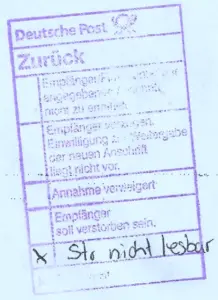 Deutsche Post
Zurück
Empfänger/
angegebenen
nicht zu ermitteln.
Empfänger verzogen.
Einwilligung z. Weitergabe
der neuen Anschrift
liegt nicht vor.
Annahme verweigert
Empfänger
soll verstorben sein.
x Str. nicht lesbar